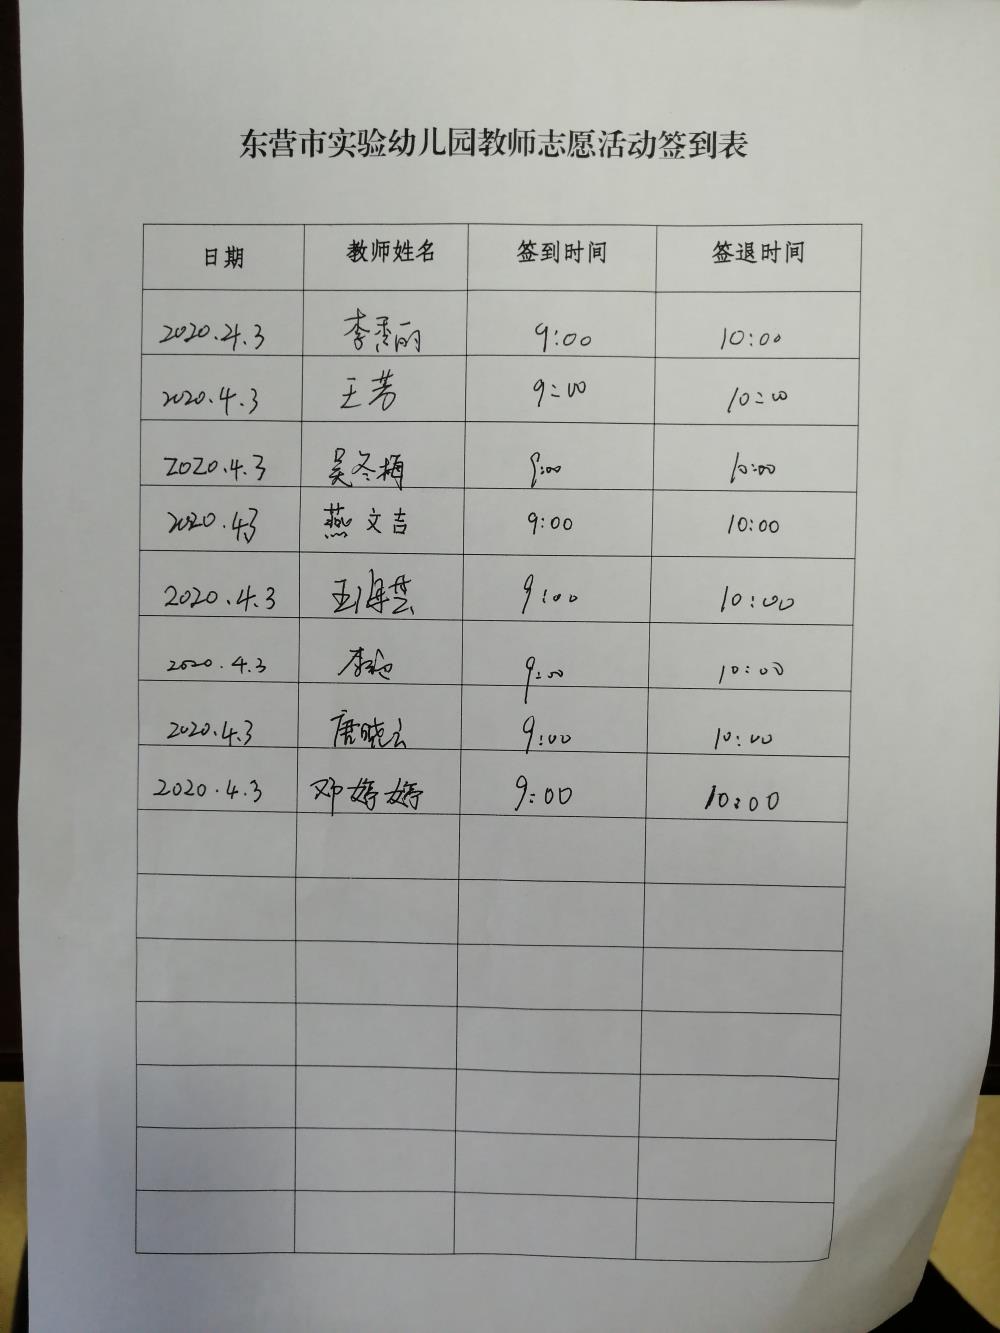 东营市实验幼儿园教师志愿活动签到表
日期 教师姓名 签到时间 签退时间
2020.4.3 李秀丽 9:00 10:00
2020.4.3 王芳 9:00 10:00
2020.4.3 吴冬梅 9:00 10:00
2020.4.3 燕文吉 9:00 10:00
2020.4.3 9:00 10:00
2020.4.3 李艳 9:00 10:00
2020.4.3 唐晓云 9:00 10:00
2020.4.3 邓婷婷 9:00 10:00